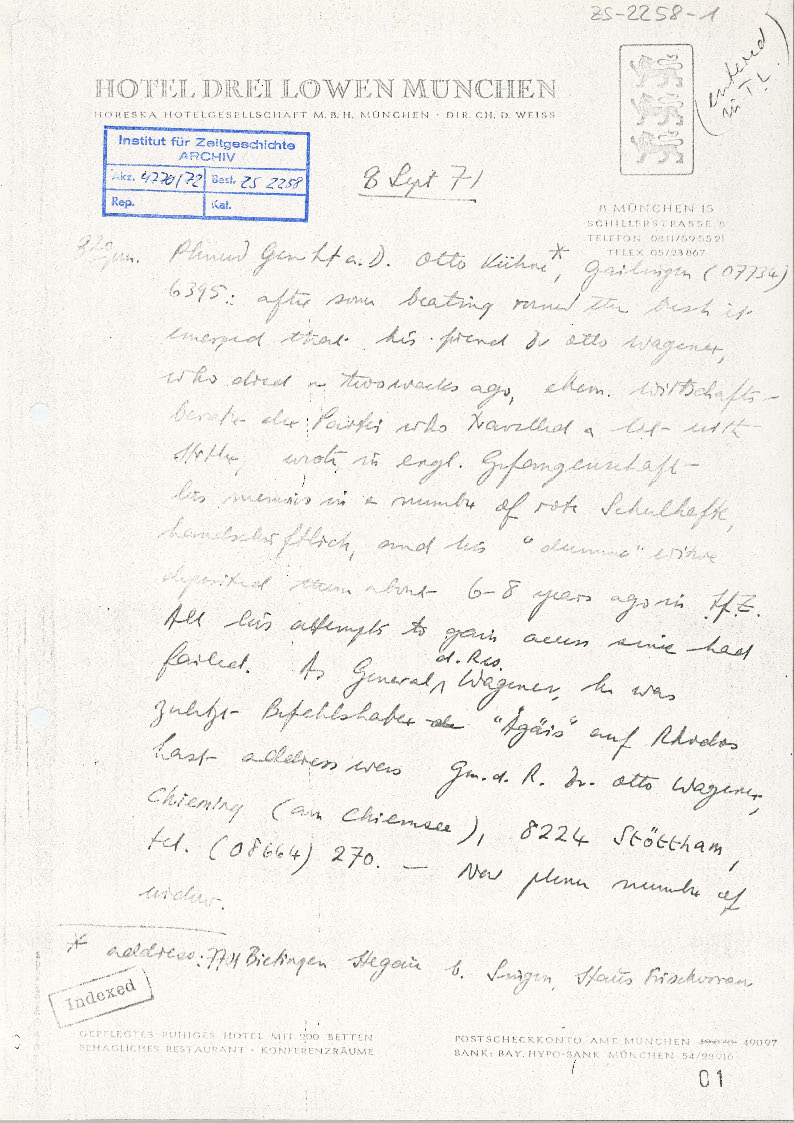 ZS-2258-1
(entered
in T.L.)
HOTEL DREI LÖWEN MÜNCHEN
HORESKA HOTELGESELLSCHAFT M.B.H. MÜNCHEN · DIR. CH. D. WEISS
Institut für Zeitgeschichte
ARCHIV
Akz. 4770/72 Best. ZS 2258
Rep. Kat.
8 Sept 71
8 MÜNCHEN 15
SCHILLERSTRASSE 8
TELEFON 0811/595521
TELEX 05/23867
Phoned Gen Lt a. D. Otto Kühne*, Gailingen (07734)
6395: after some beating round the bush it
emerged that his friend Dr Otto Wagener,
who died two weeks ago, ehem. Wirtschafts-
berater der Partei who travelled a lot with
Hitler, wrote in engl. Gefangenschaft
his memoirs in a number of rote Schulhefte,
handschriftlich, and his "dumme" Witwe
deposited them about 6-8 years ago in IfZ.
All his attempts to gain access since had
failed. As General d. Res. Wagener, he was
zuletzt Befehlshaber "Ägäis" auf Rhodos
Last address was Gm. d. R. Dr. Otto Wagener,
Chieming (am Chiemsee), 8224 Stöttham,
tel. (08664) 270. — Now phone number of
widow.
* address: 7701 Bietingen Hegau b. Singen, Haus
Indexed
GEPFLEGTES RUHIGES HOTEL MIT 200 BETTEN
BEHAGLICHES RESTAURANT · KONFERENZRÄUME
POSTSCHECKKONTO AMT MÜNCHEN 49097
BANK: BAY. HYPO-BANK MÜNCHEN 54/28916
01